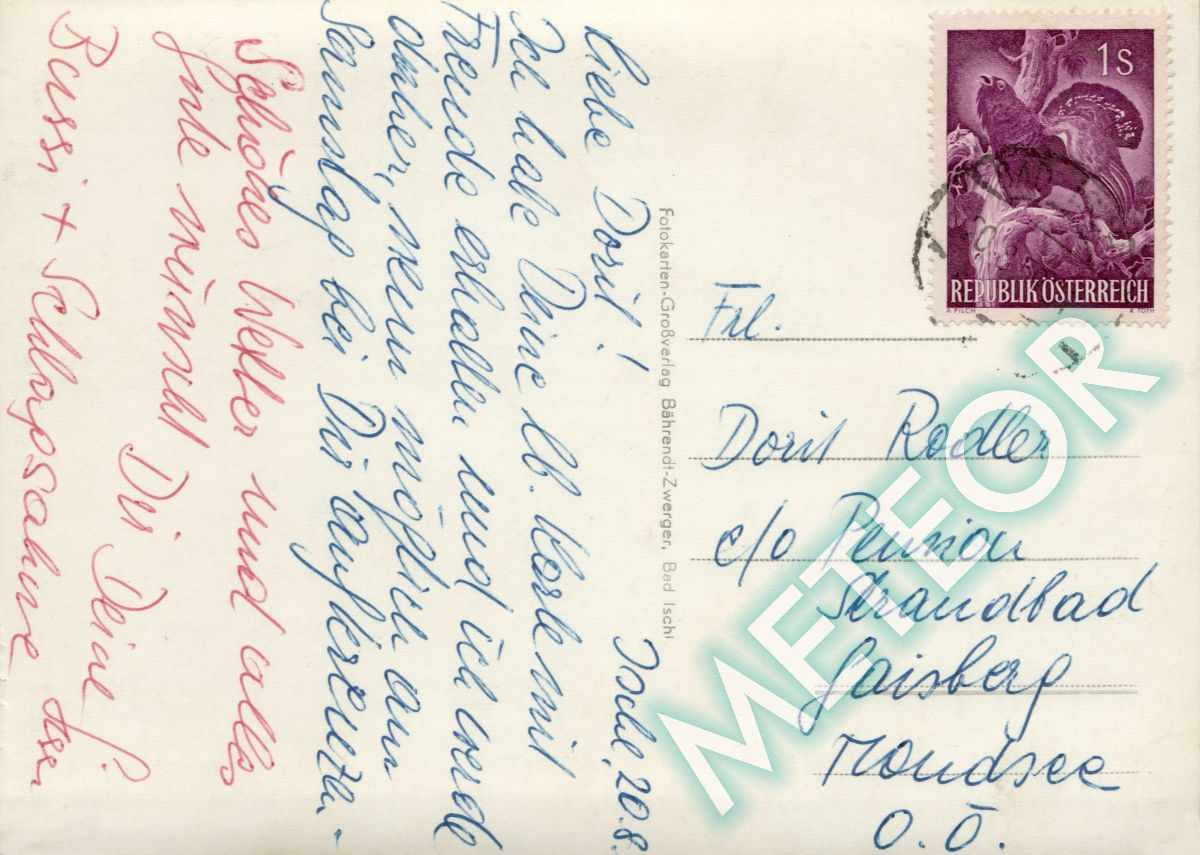 Ischl, 20.8.
Liebe Dorit!
Ich habe Deine lb. Karte mit
Freude erhalten und ich werde
daher, wenn möglich am
Samstag bei Dir aufkreuzen.-
Schönes Wetter und alles
Gute wünscht
Dir Deine
Bussi + Schlagsahne
Fotokarten-Großverlag Bährendt-Zwerger, Bad Ischl
1 S
REPUBLIK ÖSTERREICH
A. PILCH R. TOTH
Frl.
Dorit Rodler
c/o Pension
Strandbad
Gaisberg
Mondsee
O.Ö.
METEOR